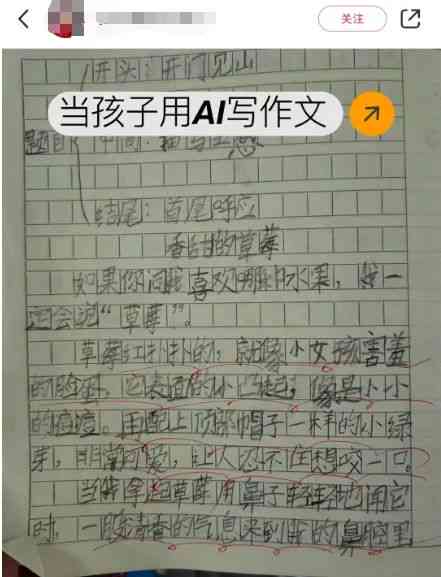 关注
开头：开门见山
当孩子用AI写作文
题目 中间：描写生感
结尾：首尾呼应
香甜的草莓
如果你问我喜欢哪种水果，我一
定会说“草莓”。
草莓红扑扑的，就像小女孩害羞
的脸蛋，它表面的小凸起，像是小小
的痘痘。再配上顶部帽子一样的小绿
芽，非常可爱，让人忍不住想咬一口。
当我拿起草莓用鼻子轻轻地闻它
时，一股清香的气息来到我的鼻腔里